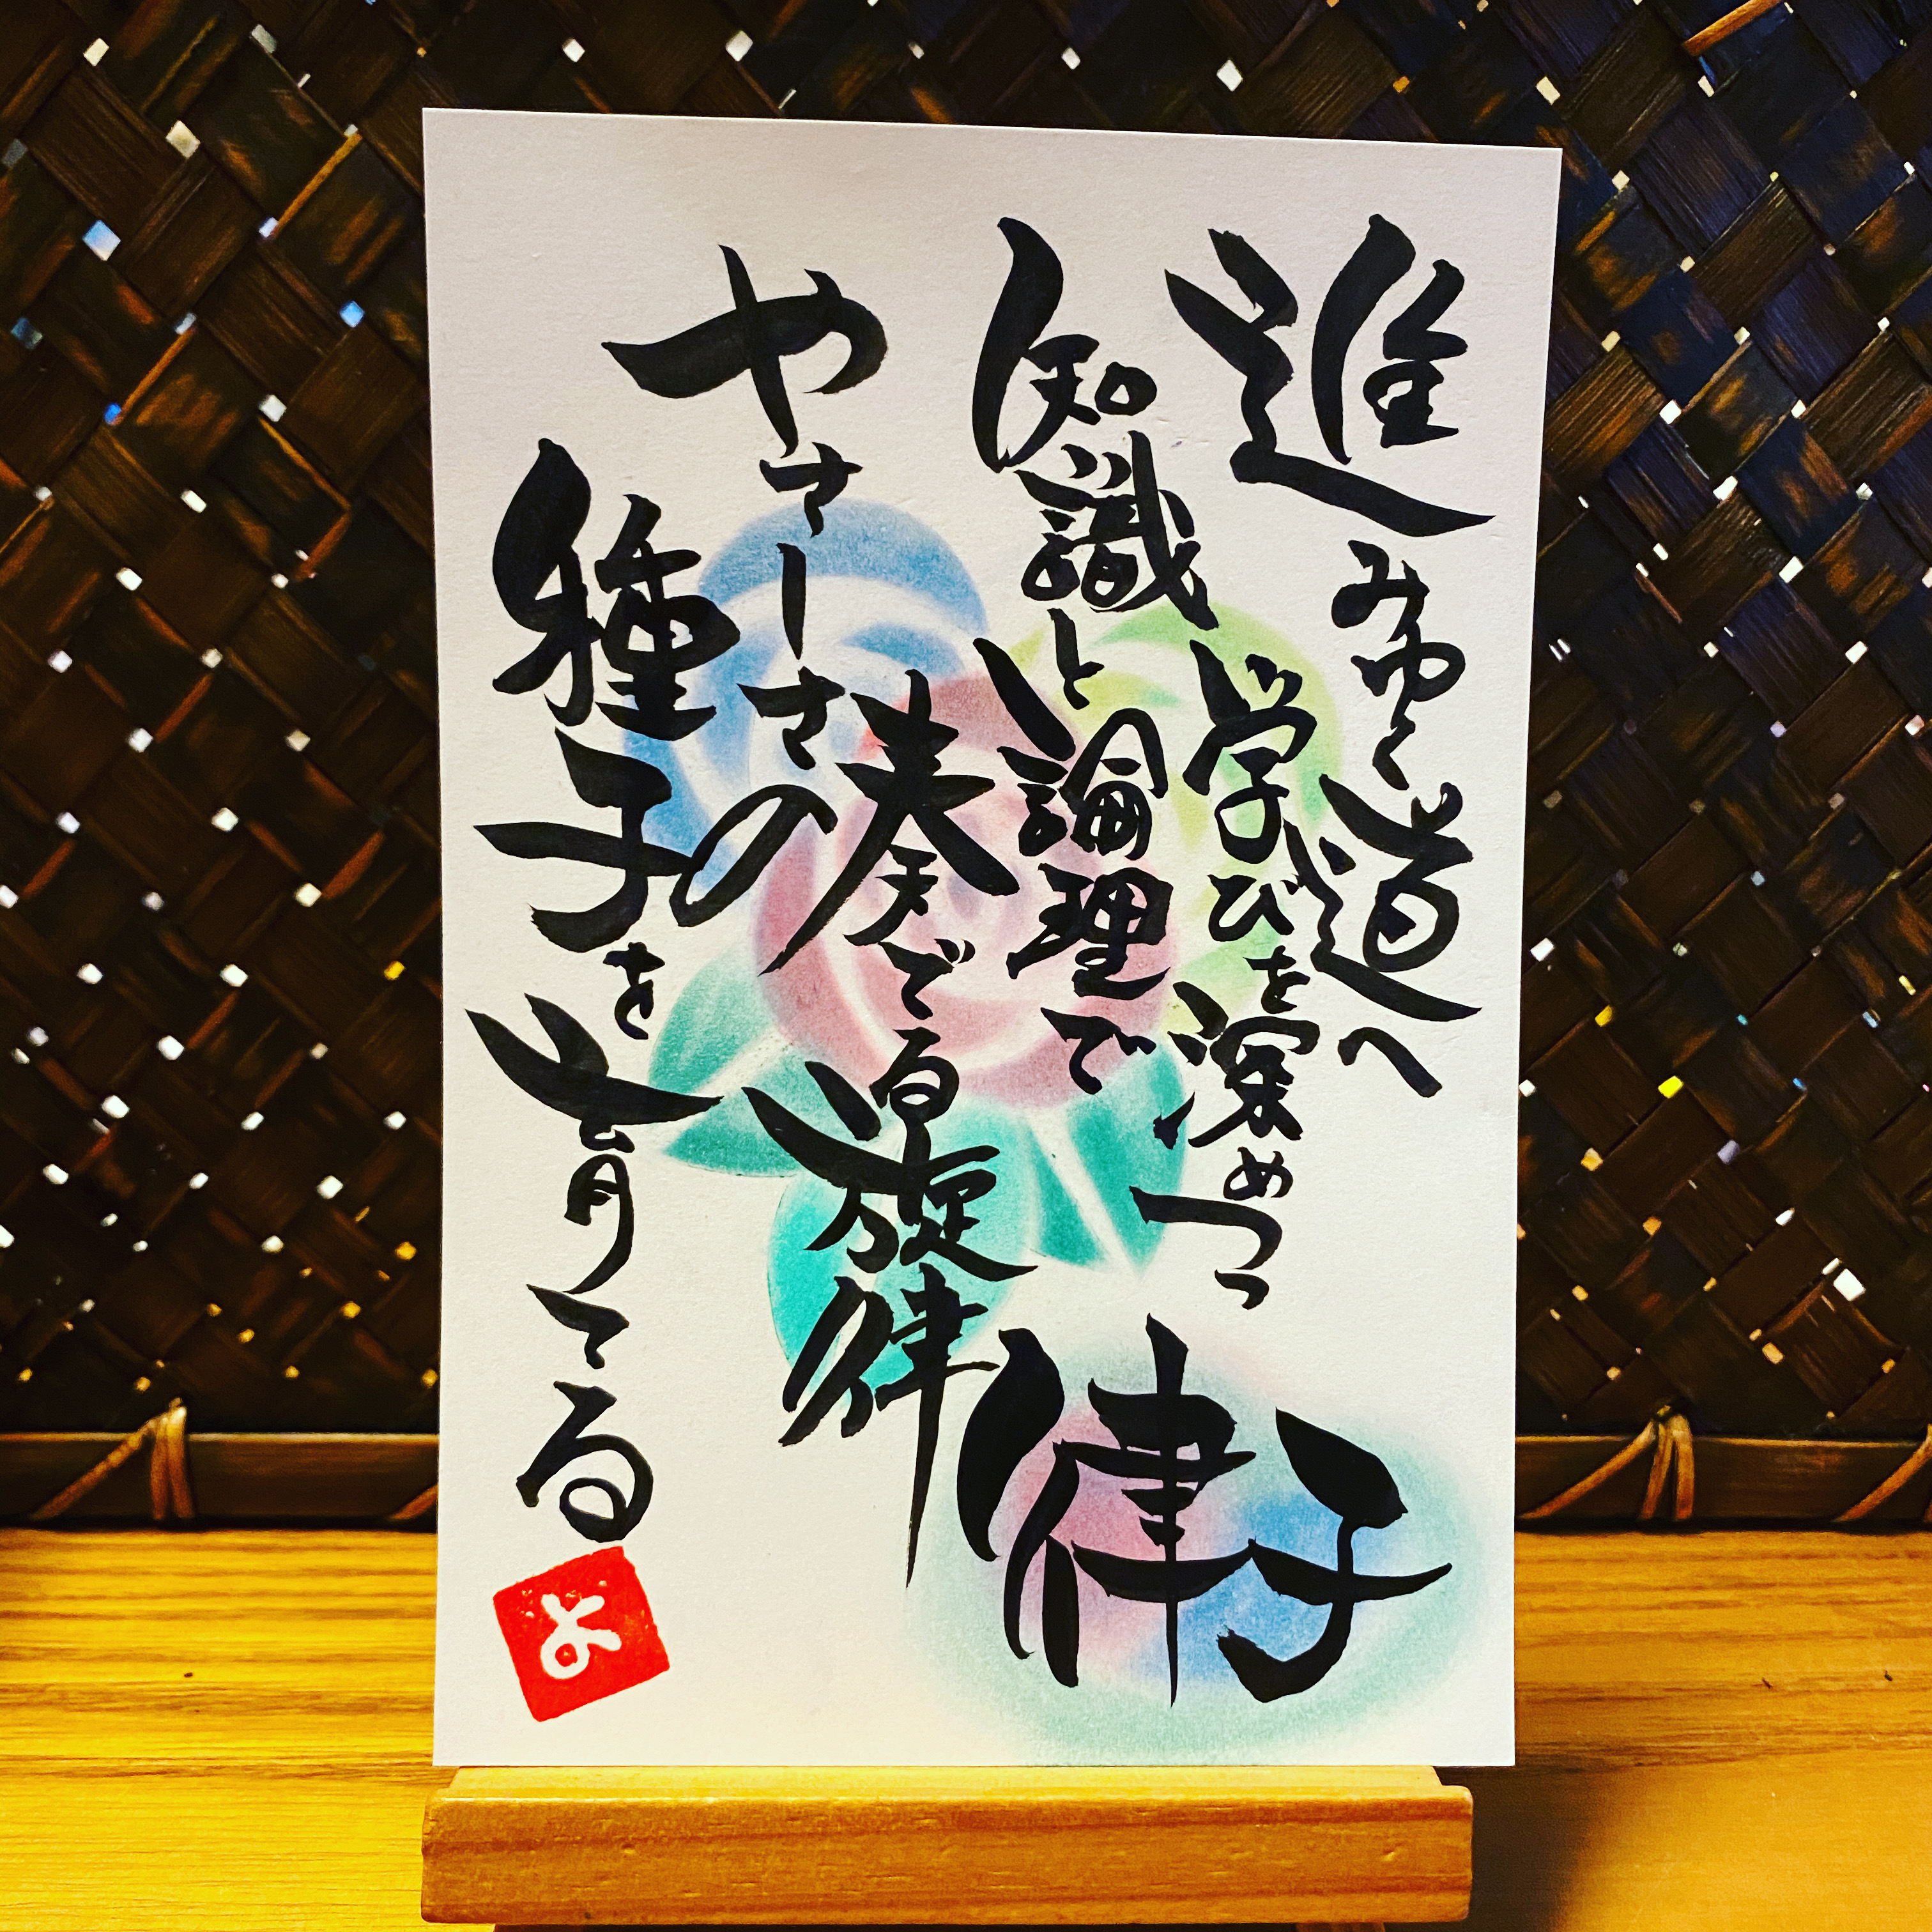 進みゆく道へ
学びを深めつつ
知識と論理で
奏でる旋律
やさしさの
種子を育てる
律子
よ